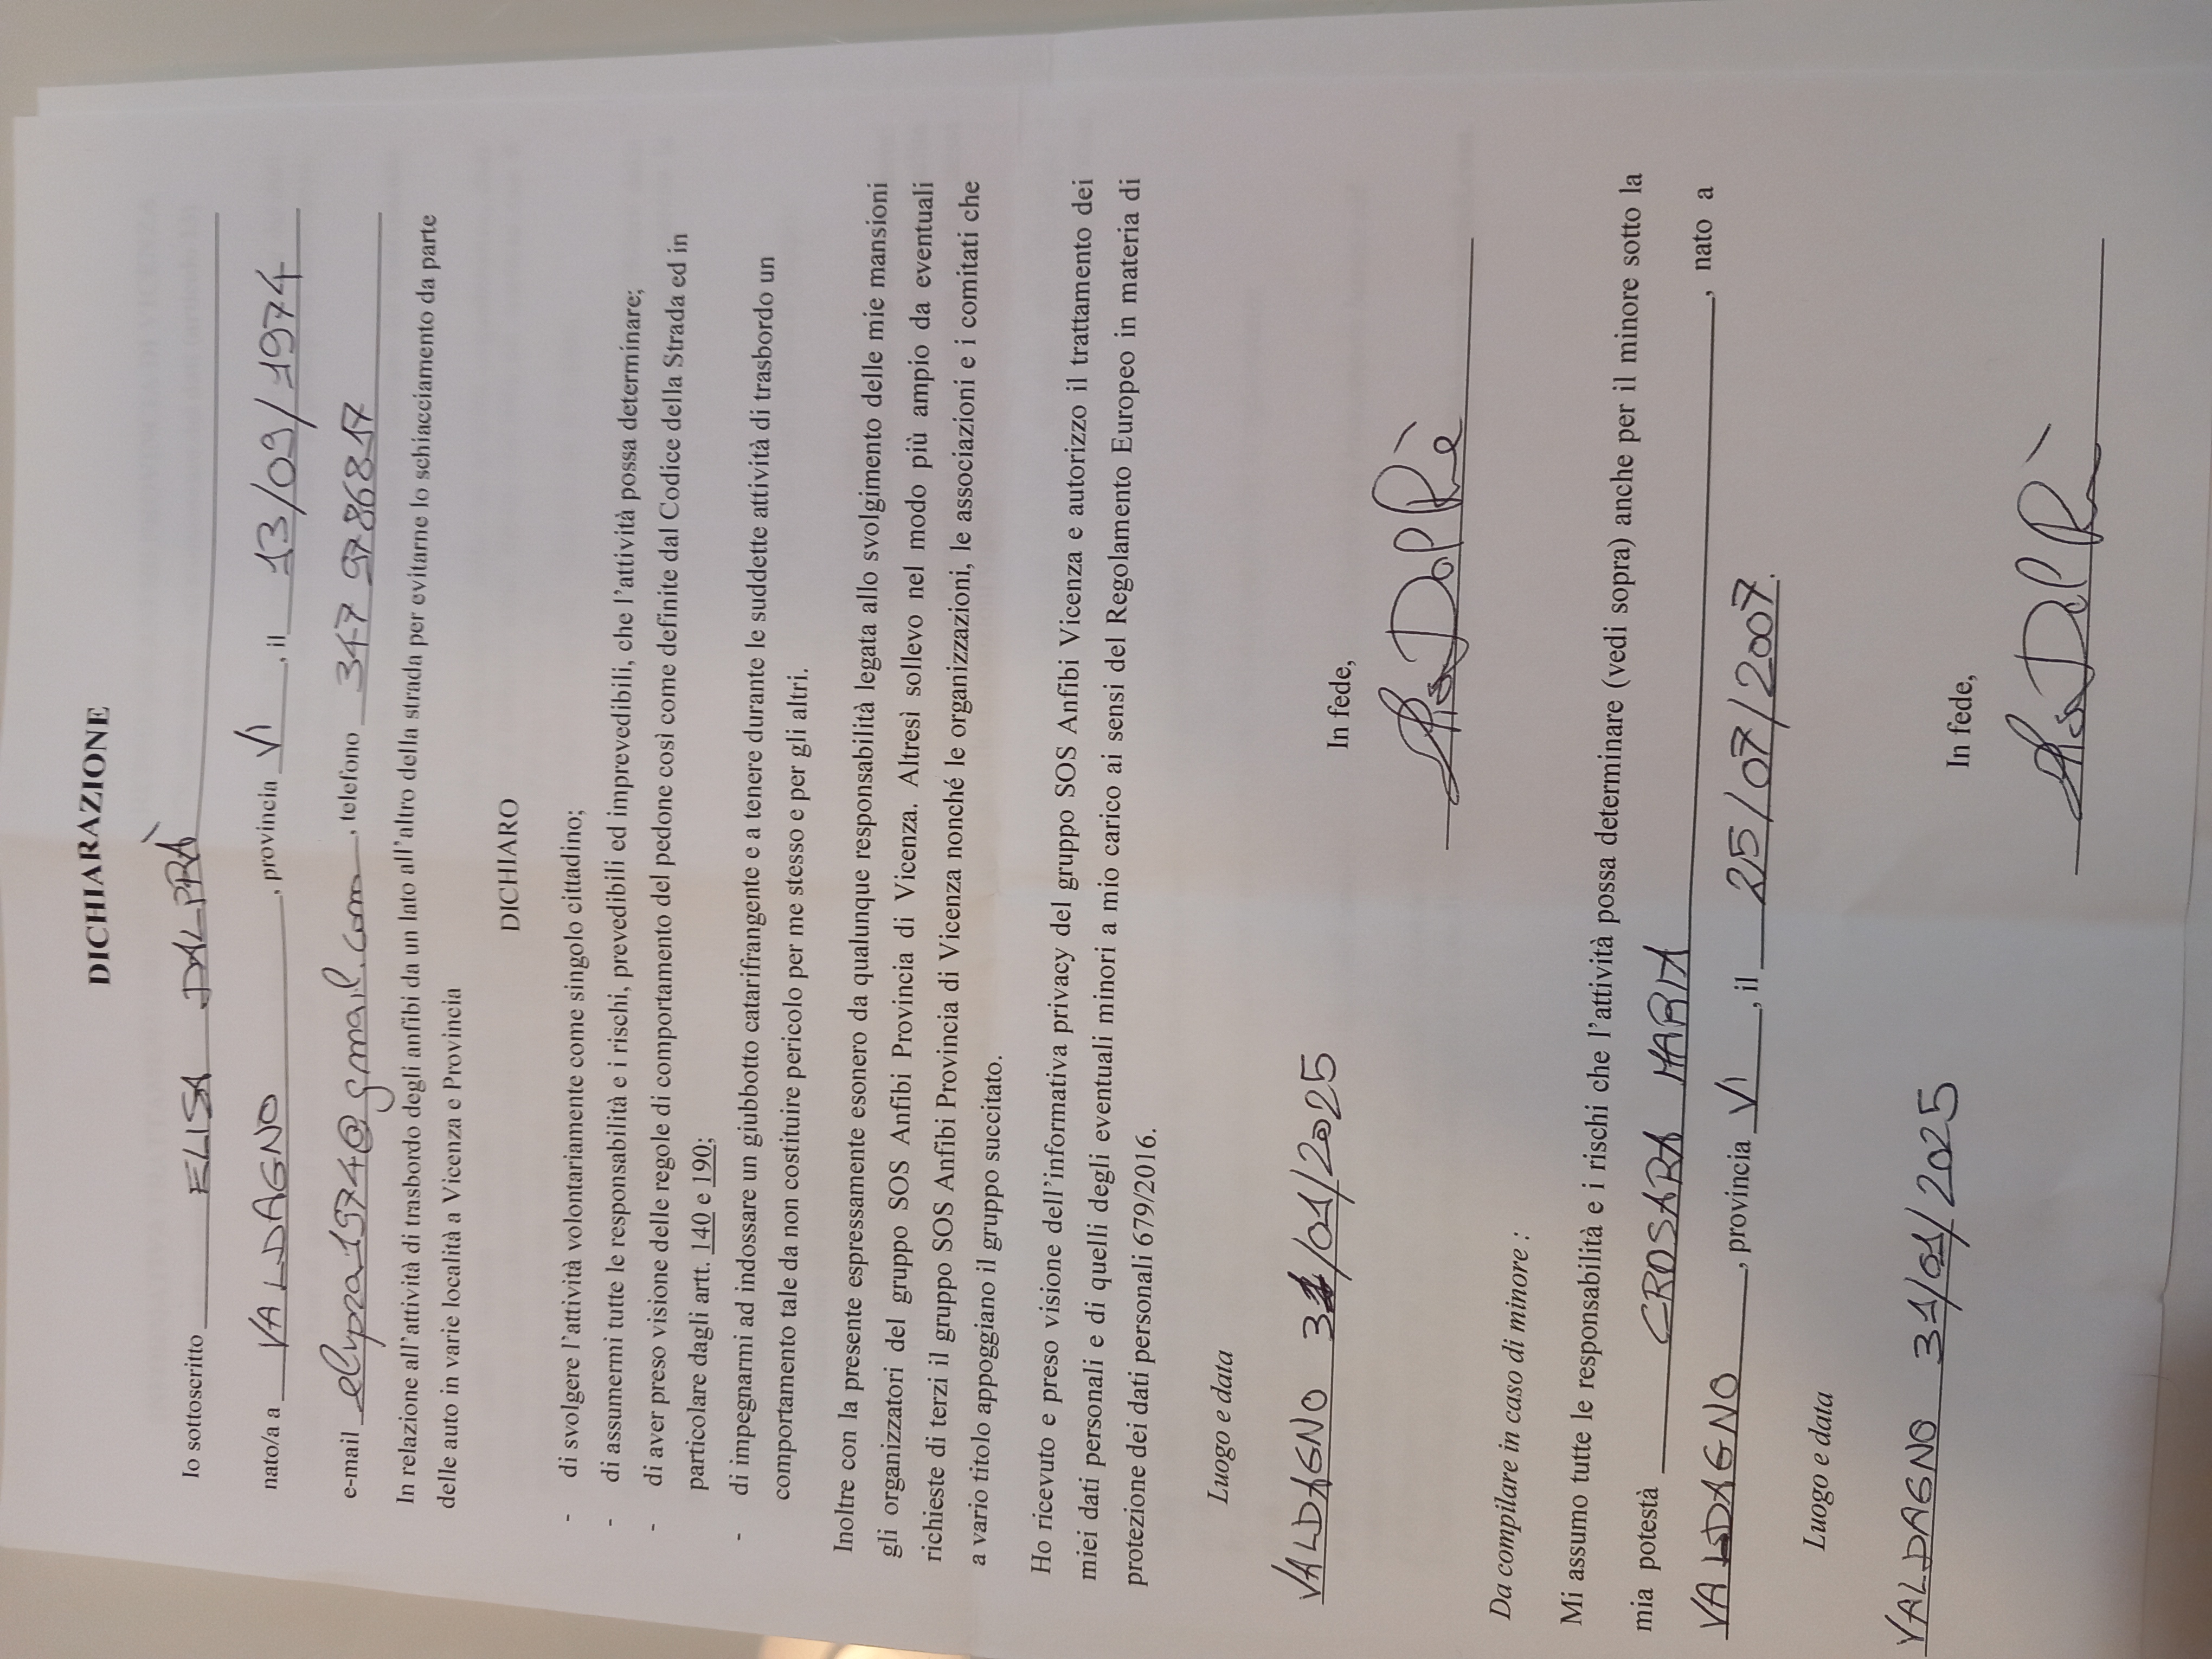 DICHIARAZIONE
Io sottoscritto ELISA DALPRÀ
nato/a a VALDAGNO, provincia VI, il 13/09/1974
e-mail elypra1974@gmail.com, telefono 347 9786817
In relazione all'attività di trasbordo degli anfibi da un lato all'altro della strada per evitarne lo schiacciamento da parte
delle auto in varie località a Vicenza e Provincia
DICHIARO
- di svolgere l'attività volontariamente come singolo cittadino;
- di assumermi tutte le responsabilità e i rischi, prevedibili ed imprevedibili, che l'attività possa determinare;
- di aver preso visione delle regole di comportamento del pedone così come definite dal Codice della Strada ed in
particolare dagli artt. 140 e 190;
- di impegnarmi ad indossare un giubbotto catarifrangente e a tenere durante le suddette attività di trasbordo un
comportamento tale da non costituire pericolo per me stesso e per gli altri.
Inoltre con la presente espressamente esonero da qualunque responsabilità legata allo svolgimento delle mie mansioni
gli organizzatori del gruppo SOS Anfibi Provincia di Vicenza. Altresì sollevo nel modo più ampio da eventuali
richieste di terzi il gruppo SOS Anfibi Provincia di Vicenza nonché le organizzazioni, le associazioni e i comitati che
a vario titolo appoggiano il gruppo succitato.
Ho ricevuto e preso visione dell'informativa privacy del gruppo SOS Anfibi Vicenza e autorizzo il trattamento dei
miei dati personali e di quelli degli eventuali minori a mio carico ai sensi del Regolamento Europeo in materia di
protezione dei dati personali 679/2016.
Luogo e data
VALDAGNO 31/01/2025
In fede,
Elisa Dal Prà
Da compilare in caso di minore :
Mi assumo tutte le responsabilità e i rischi che l'attività possa determinare (vedi sopra) anche per il minore sotto la
mia potestà CROSARA MARIA, nato a
VALDAGNO, provincia VI, il 25/07/2007.
Luogo e data
VALDAGNO 31/01/2025
In fede,
Elisa Dal Prà